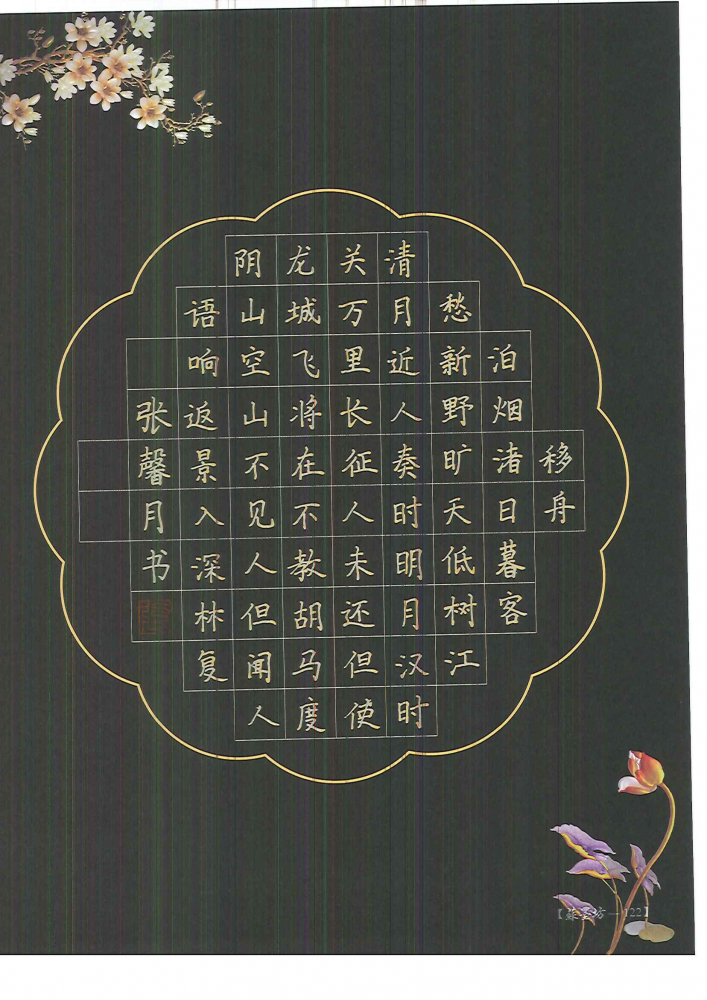 移舟
泊烟渚日暮客
愁新野旷天低树江
清月近人奏时明月汉时
关万里长征人未还但使
龙城飞将在不教胡马度
阴山空山不见人但闻人
语响返景入深林复
张馨月书
122】